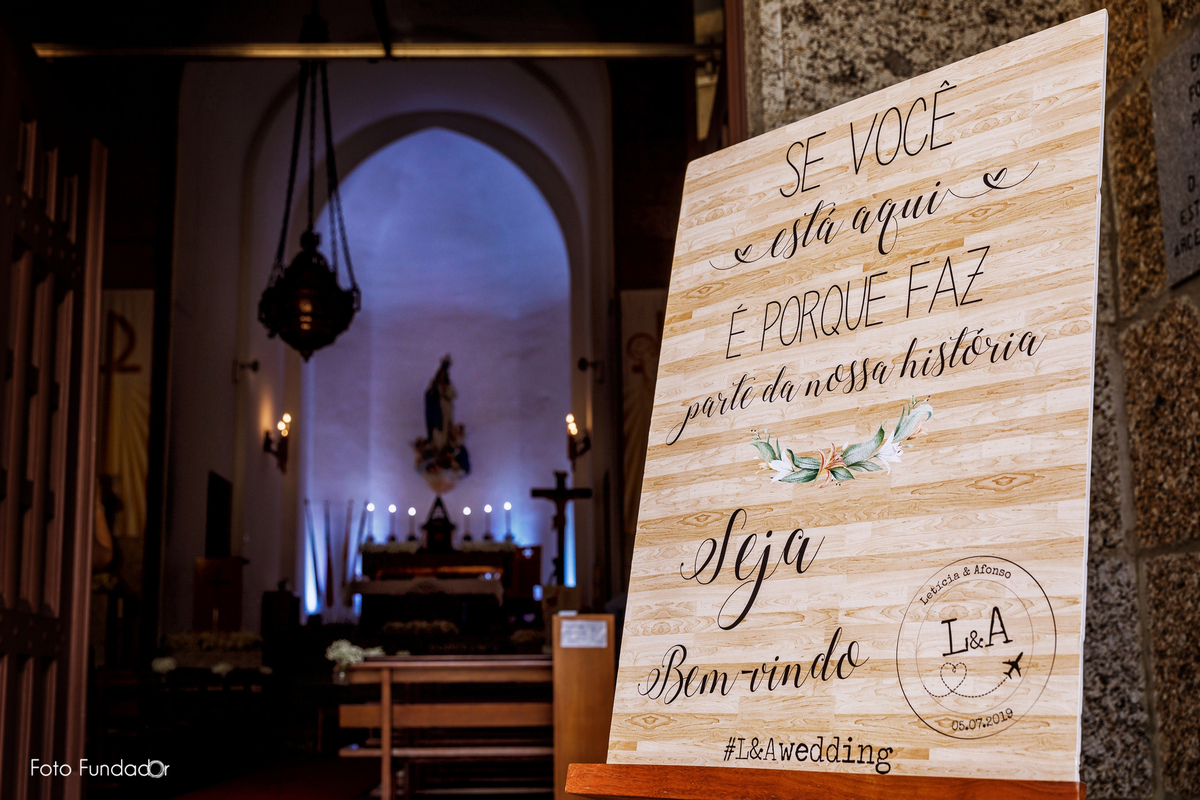 SE VOCÊ
está aqui
É PORQUE FAZ
parte da nossa história
Seja
Bem-vindo
Letícia & Afonso
L&A
05.07.2019
#L&Awedding
Foto Fundador